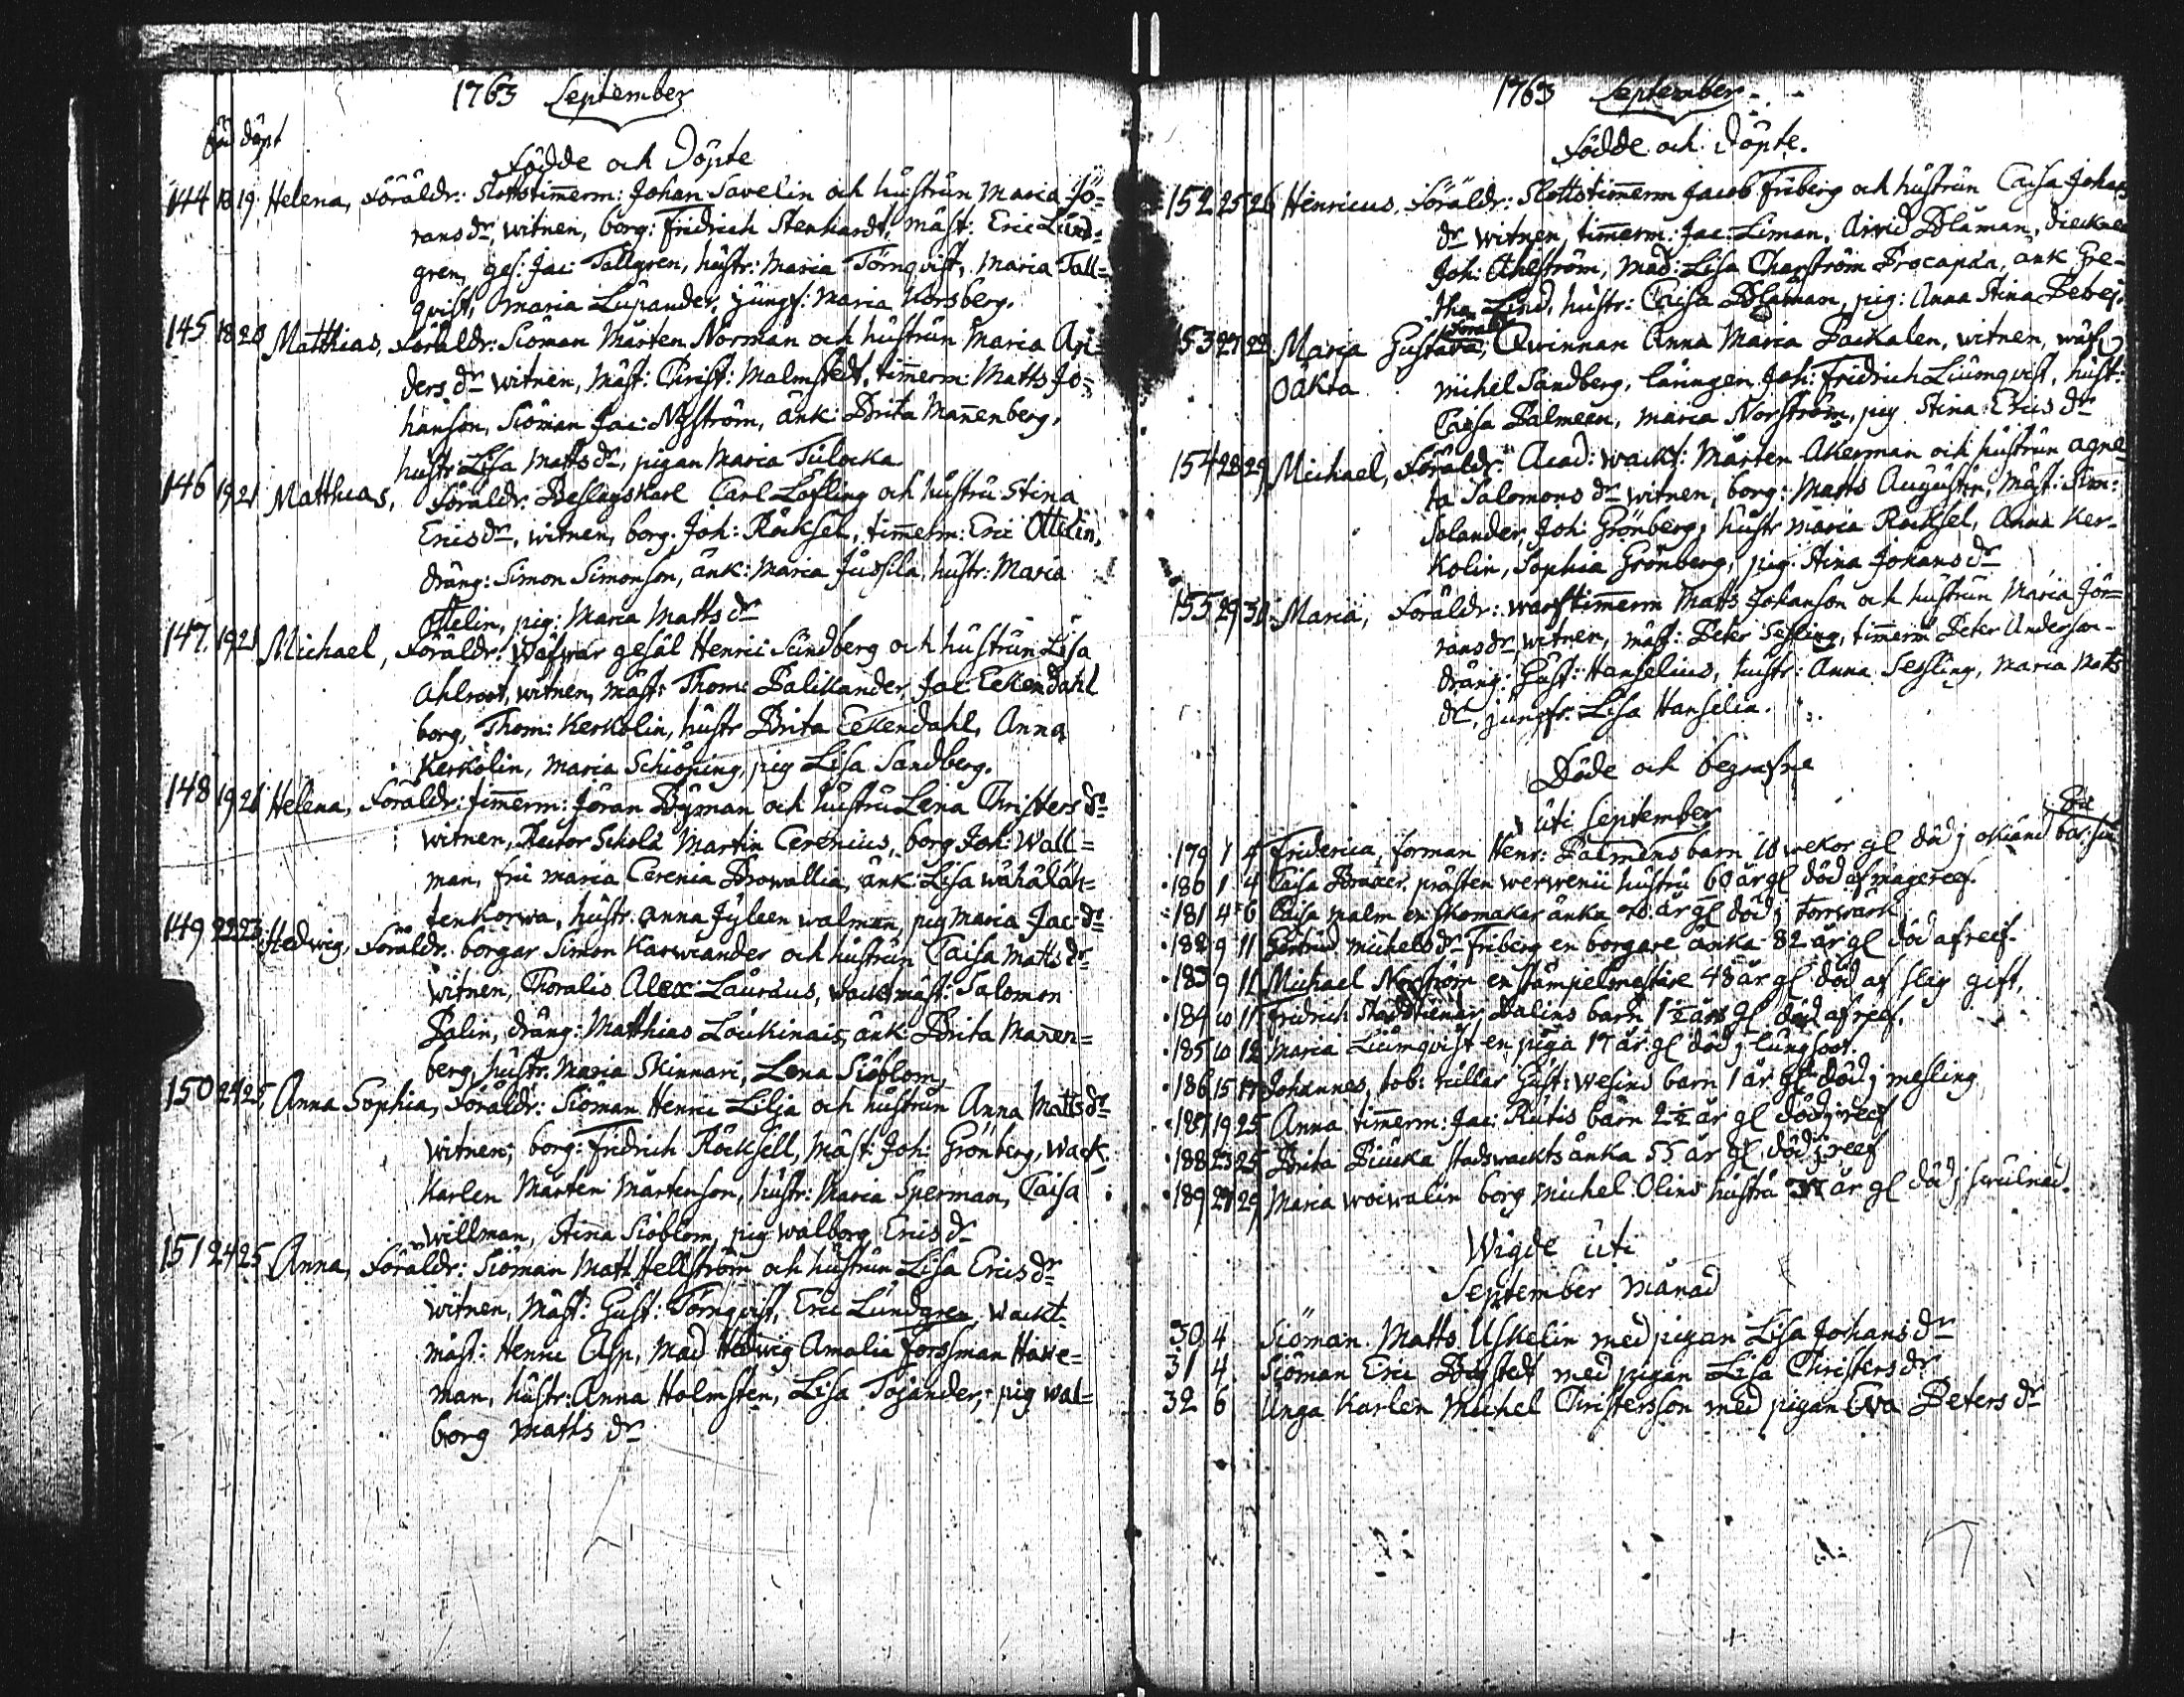 1763 September
föd döpt
Födde och Döpte
144 18 19 Helena, Föräldr: Slottstimerm: Johan Savelin och hustrun Maria Jö-
rans dr, witnen, borg: Fridrich Stenhardt, mäst: Eric Lund-
gren, ges: Jac: Tallgren, hustr: Maria Törnqvist, Maria Tall-
qvist, Maria Lupander, jungf: Maria Korsberg.
145 18 20 Matthias, Föräldr: Siöman Mårten Norman och hustrun Maria An-
ders dr witnen, mäst: Christ: Malmstedt, timerm: Matts Jo-
hanson, Siöman Jac: Nyström, änk: Brita Manenberg,
hustr: Lisa Matts dr, pigan Maria Tulocka
146 19 21 Matthias, Föräldr: Beslagskarl Carl Lofling och hustru Stina
Erics dr, witnen, borg. Joh: Röksel, timerm: Eric Ottelin,
dräng: Simon Simonson, änk: Maria Judsila, hustr: Maria
Ottelin, pig: Maria Matts dr
147. 19 21 Michael, Föräldr: Wäfwar gesäl Henric Sundberg och hustrun Lisa
Ahlroot, witnen, mäst: Thom: Palikander, Jac: Eckendahl
borg, Thom: Kerkolin, hustr Brita Eckendahl, Anna
Kerkolin, Maria Schiöping, pig Lisa Sandberg.
148 19 21 Helena, Föräldr: timerm: Jöran Byman och hustru Lena Christers dr
witnen, Rector Scholæ Martin Cerenius, borg Joh: Wall-
man, fru Maria Cerenia Browallia, änk: Lisa
tenkorwa, hustr: Anna Jyleen walman, pig Maria Jac: dr
149 22 23 Hedwig, Föräldr: borgar Simon Karwiander och hustrun Caisa Matts dr
witnen, Choralis Alex: Lauræus, wacktmäst: Salomon
Palin, dräng: Matthias Loukinais, änk Brita Manen-
berg, hustr: Maria Skinnari, Lena Siöblom,
150 24 25 Anna Sophia, Föräldr: Siöman Henric Lilja och hustrun Anna Matts dr
witnen, borg: Fridrich Röcksell, mäst: Joh: Grönberg, Wack-
karlen Mårten Mårtenson, hustr: Maria Sperman, Caisa
Willman, Stina Siöblom, pig walborg Erics dr
151 24 25 Anna, Föräldr: Siöman Matts Hellström och hustrun Lisa Erics dr
witnen, Mäst: Gust: Törnqvist, Eric Lundgren, wackt-
mäst: Henric Asp, Mad Hedwig Amalia Forssman Hawe-
man, hustr: Anna Holmsten, Lisa Tojander, pig wal-
borg Matts dr
1763 September
Födde och Döpte.
152 25 26 Henricus, Föräldr: Slottstimerm Jacob Friberg och hustrun Caisa Johans
dr witnen, timerm: Jac: Liman, Arvid Blåman, dieknen
Joh: Ahlström, mad: Lisa Charström Procapæa, änk Gre-
tha Lind, hustr: Caisa Blåman, pig: Anna Stina Bebej.
153 27 28 Maria Gustava, Föräldr Qwinnan Anna Maria Packalen, witnen, wäf
Oäkta Michel Sandberg, läringen Joh: Fridrich Liumqvist, hust:
Caisa Palmeen, Maria Norström, pig Stina Erics dr
154 28 29 Michael, Föräldr: Acad: wackt: Mårten Åkerman och hustrun Agne-
ta Salomons dr witnen, borg: Matts Augustin, mäst: Sim:
Solander, Joh: Grönberg, hustr Maria Rocksel, Anna Ker-
kolin, Sophia Grönberg, pig: Stina Johans dr
155 29 30 Maria, Föräldr: warfstimerm Matts Johanson och hustrun Maria Jör-
rans dr, witnen, mäst: Peter Sesling, timerm Peter Anderson
dräng: Gust: Hanselius, hustr: Anna Sessling, Maria Matts
dr, jungfr: Lisa Hanselia.
Döde och begrafne
uti September
179 1 4 Fridericia, forman Henr: Palmens barn 10 wekor gl död j okiänd bar: siu
180 1 4 Caisa prästen werwenii hustru 60 år gl död af mageref.
181 4 6 Caisa malm en skomakar änka 70 år gl död j torrwärk
182 9 11 Gertrud Michels dr Friberg en borgare änka 82 år gl död af reef.
183 9 11 Michael Norström en stämpelmestare 48 år gl död af slag gift,
184 10 11 Fridrich Stadstienar Dalins barn 1½ års gl död af reef.
185 10 12 Maria Liumqvist en piga 17 år gl död j lungsoot.
186 15 17 Johannes, tob: rullar Gust: Wesins barn 1 år gl död j mesling
187 19 25 Anna timerm: Jac: Rutis barn 2½ år gl död j reef
188 23 25 Brita Piucka stadswackts änka 55 år gl död j reef
189 27 29 Maria woiwalin borg Michel Olins hustru år gl död j swulnad.
Wigde uti
September månad
30 4 Siöman Matts Uskelin med pigan Lisa Johans dr
31 4 Siöman Eric Bogstedt med pigan Lisa Christers dr
32 6 Unga Karlen Michel Christersson med pigan Eva Peters dr